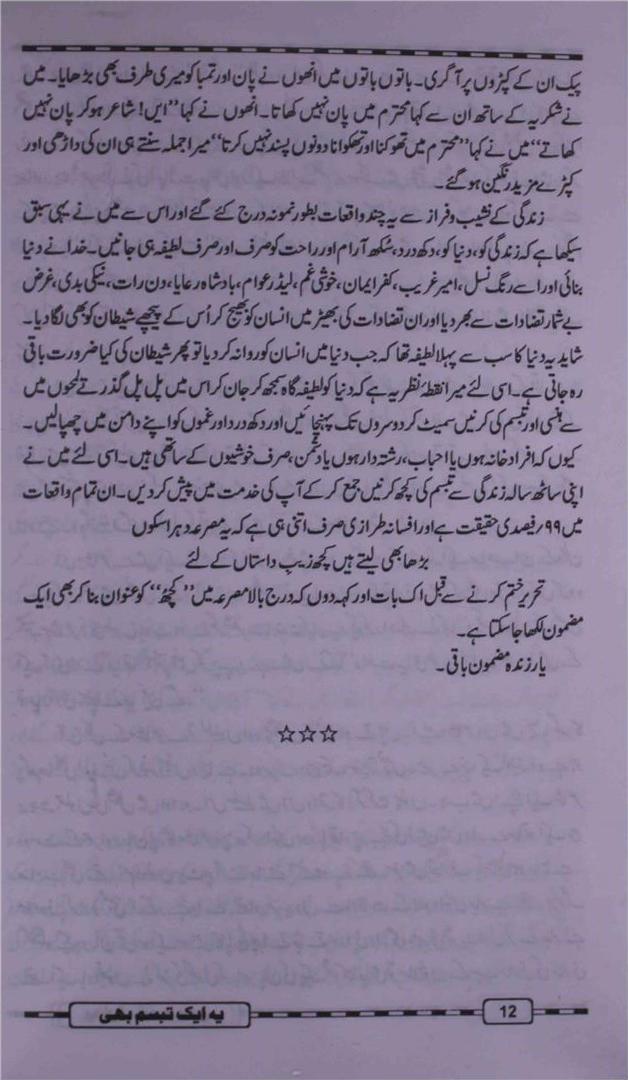 پیک ان کے کپڑوں پر آگری۔ باتوں باتوں میں انھوں نے پان اور تمباکو میری طرف بھی بڑھایا۔ میں
نے شکریہ کے ساتھ ان سے کہا محترم میں پان نہیں کھاتا۔ انھوں نے کہا ”ایں! شاعر ہو کر پان نہیں
کھاتے“ میں نے کہا ”محترم میں تھوکنا اور تھکوانا دونوں پسند نہیں کرتا“ میرا جملہ سنتے ہی ان کی داڑھی اور
کپڑے مزید رنگین ہو گئے۔
زندگی کے نشیب و فراز سے یہ چند واقعات بطور نمونہ درج کئے گئے اور اس سے میں نے یہی سبق
سیکھا ہے کہ زندگی کو، دنیا کو، دکھ درد، سُکھ آرام اور راحت کو صرف اور صرف لطیفہ ہی جانیں۔ خدا نے دنیا
بنائی اور اسے رنگ نسل، امیر غریب، کفر ایمان، خوشی غم، لیڈر عوام، بادشاہ رعایا، دن رات، نیکی بدی، غرض
بے شمار تضادات سے بھر دیا اور ان تضادات کی بھیڑ میں انسان کو بھیج کر اُس کے پیچھے شیطان کو بھی لگا دیا۔
شاید یہ دنیا کا سب سے پہلا لطیفہ تھا کہ جب دنیا میں انسان کو روانہ کر دیا تو پھر شیطان کی کیا ضرورت باقی
رہ جاتی ہے۔ اسی لئے میرا نقطۂ نظر یہ ہے کہ دنیا کو لطیفہ گاہ سمجھ کر جان کر اس میں پل پل گذرتے لمحوں میں
سے ہنسی اور تبسم کی کرنیں سمیٹ کر دوسروں تک پہنچائیں اور دکھ درد اور غموں کو اپنے دامن میں چھپالیں۔
کیوں کہ افراد خانہ ہوں یا احباب، رشتہ دار ہوں یا دشمن، صرف خوشیوں کے ساتھی ہیں۔ اسی لئے میں نے
اپنی ساٹھ سالہ زندگی سے تبسم کی کچھ کرنیں جمع کر کے آپ کی خدمت میں پیش کر دیں۔ ان تمام واقعات
میں ۹۹ رفیصدی حقیقت ہے اور افسانہ طرازی صرف اتنی ہی ہے کہ یہ مصرعہ دہرا سکوں
بڑھا بھی لیتے ہیں کچھ زیب داستاں کے لئے
تحریر ختم کرنے سے قبل اک بات اور کہہ دوں کہ درج بالا مصرعہ میں ”کچھ“ کو عنوان بنا کر بھی ایک
مضمون لکھا جا سکتا ہے۔
یار زندہ مضمون باقی۔
☆☆☆
یہ ایک تبسم بھی
12